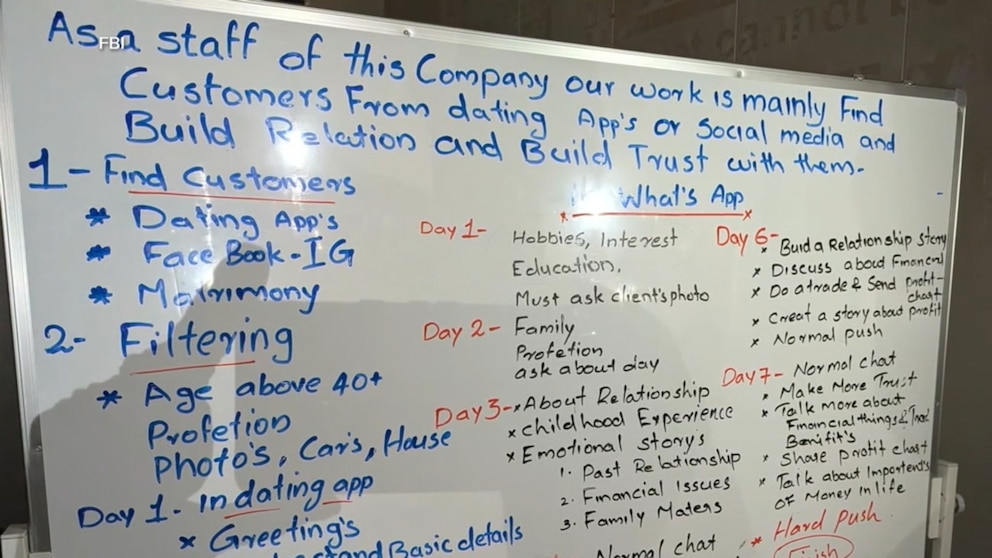 FBI
As a staff of this Company our work is mainly Find
Customers From dating App's or Social media and
Build Relation and Build Trust with them.
1- Find Customers
* Dating App's
* Face Book - IG
* Matrimony
2- Filtering
* Age above 40+
Profetion
Photo's, Car's, House
Day 1. In dating app
* Greeting's
and Basic details
What's App
Day 1- Hobbies, Interest
Education,
Must ask client's photo
Day 2- Family
Profetion
ask about day
Day 3- * About Relationship
* childhood Experience
* Emotional story's
1. Past Relationship
2. Financial Issues
3. Family Maters
Normal chat
Day 6-
* Buid a Relationship story
* Discuss about Financial
* Do a trade & Send profit-
chart
* Creat a story about profit
* Normal push
Day 7- Normal chat
* Make More Trust
* Talk more about
Financial things &
Benifit's
* Share profit chart
* Talk about Importent's
of Money In life
* Hard Push
Finish